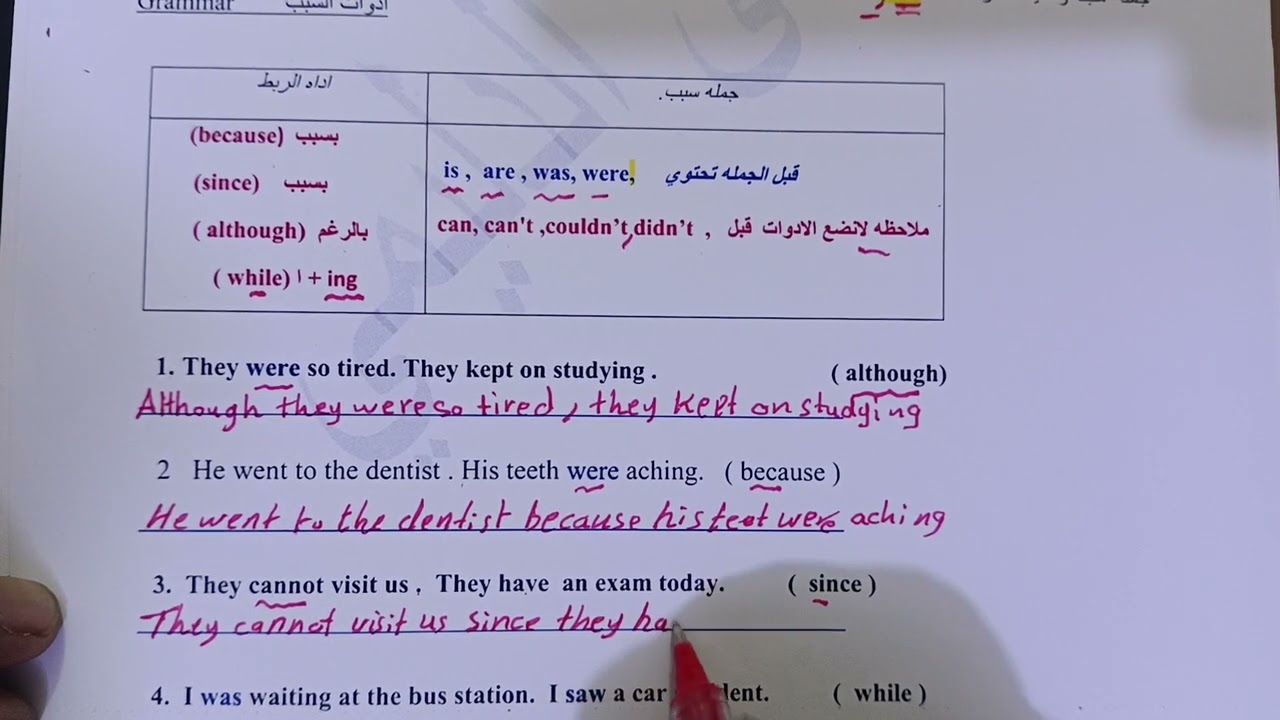 Grammar ادوات السبب
اداه الربط
جمله سبب.
(because) بسبب
(since) بسبب
( although) بالرغم
( while) ا + ing
is , are , was, were, قبل الجمله تحتوي
can, can't ,couldn't,didn't , ملاحظه لانضع الادوات قبل
1. They were so tired. They kept on studying . ( although)
Although they were so tired, they kept on studying
2 He went to the dentist . His teeth were aching. ( because )
He went to the dentist because his teet were aching
3. They cannot visit us , They have an exam today. ( since )
They cannot visit us since they ha
4. I was waiting at the bus station. I saw a car dent. ( while )